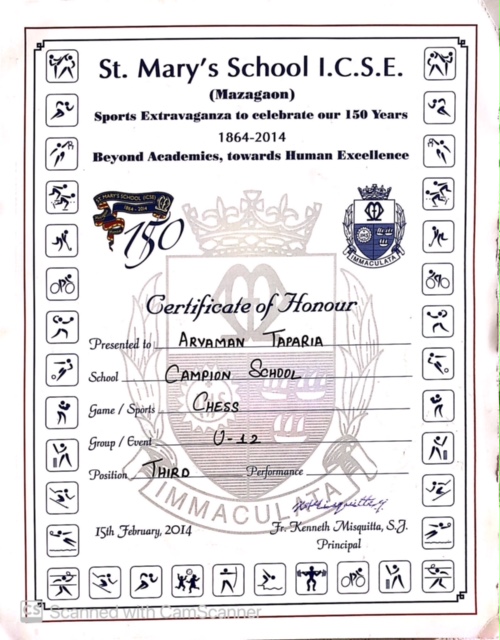 St. Mary's School I.C.S.E.
(Mazagaon)
Sports Extravaganza to celebrate our 150 Years
1864-2014
Beyond Academics, towards Human Excellence
ST. MARY'S SCHOOL (ICSE)
1864 - 2014
150
IMMACULATA
Certificate of Honour
Presented to ARYAMAN TAPARIA
School CAMPION SCHOOL
Game / Sports CHESS
Group / Event U-12
Position THIRD Performance
IMMACULATA
15th February, 2014
Fr. Kenneth Misquitta, S.J.
Principal
CS Scanned with CamScanner